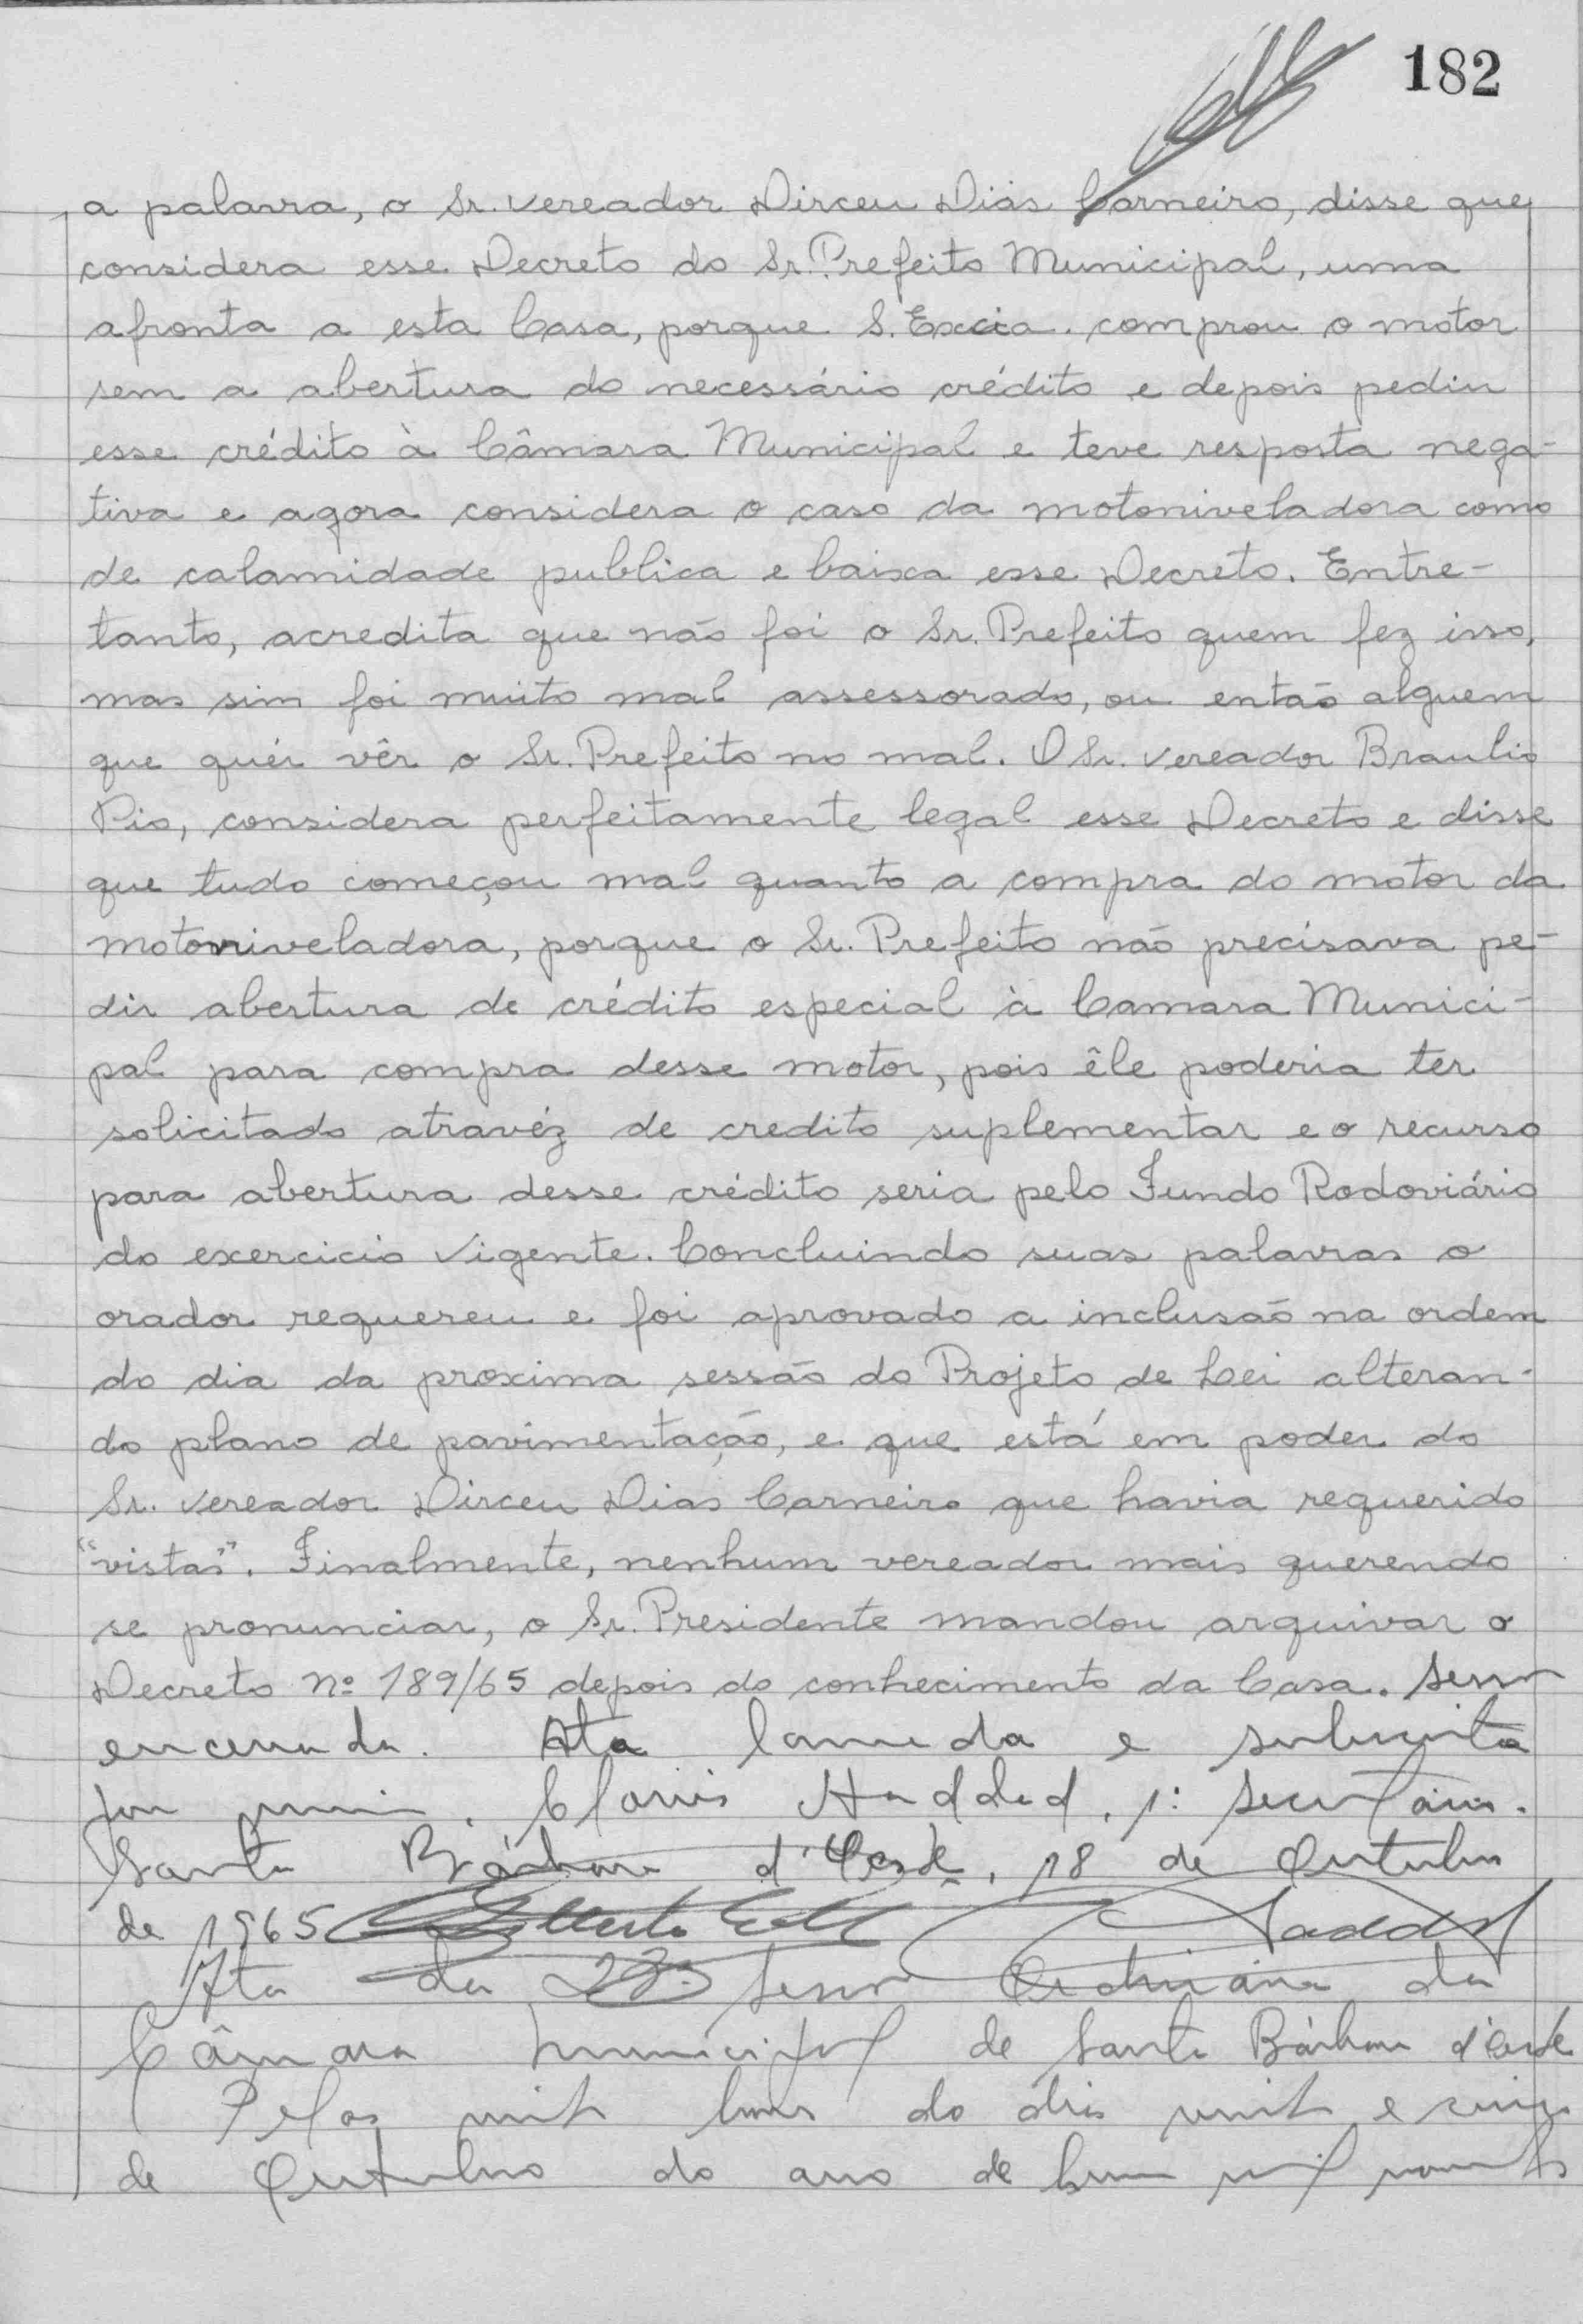 182
a palavra, o Sr. vereador Dirceu Dias Carneiro, disse que
considera esse Decreto do Sr. Prefeito Municipal, uma
afronta a esta Casa, porque S. Excia. comprou o motor
sem a abertura do necessário crédito e depois pediu
esse crédito à Câmara Municipal e teve resposta nega-
tiva e agora considera o caso da motoniveladora como
de calamidade publica e baixa esse Decreto. Entre-
tanto, acredita que não foi o Sr. Prefeito quem fez isso,
mas sim foi muito mal assessorado, ou então alguem
que quér vêr o Sr. Prefeito no mal. O Sr. vereador Braulio
Pio, considera perfeitamente legal esse Decreto e disse
que tudo começou mal quanto a compra do motor da
motoniveladora, porque o Sr. Prefeito não precisava pe-
dir abertura de crédito especial à Camara Munici-
pal para compra desse motor, pois êle poderia ter
solicitado atravéz de credito suplementar e o recurso
para abertura desse crédito seria pelo Fundo Rodoviário
do exercicio vigente. Concluindo suas palavras o
orador requereu e foi aprovado a inclusão na ordem
do dia da proxima sessão do Projeto de Lei alteran-
do plano de pavimentação, e que está em poder do
Sr. vereador Dirceu Dias Carneiro que havia requerido
"vistas". Finalmente, nenhum vereador mais querendo
se pronunciar, o Sr. Presidente mandou arquivar o
Decreto nº 189/65 depois do conhecimento da Casa. Sessão
encerrada. Ata lavrada e subscrita
por mim. Clovis Haddad, 1º Secretário.
Santa Bárbara d'Oeste, 18 de Outubro
de 1965 Haddad
Ata da 28ª Sessão Ordinária da
Câmara Municipal de Santa Bárbara d'Oeste
Pelas vinte horas do dia vinte e cinco
de Outubro do ano de hum mil novecentos